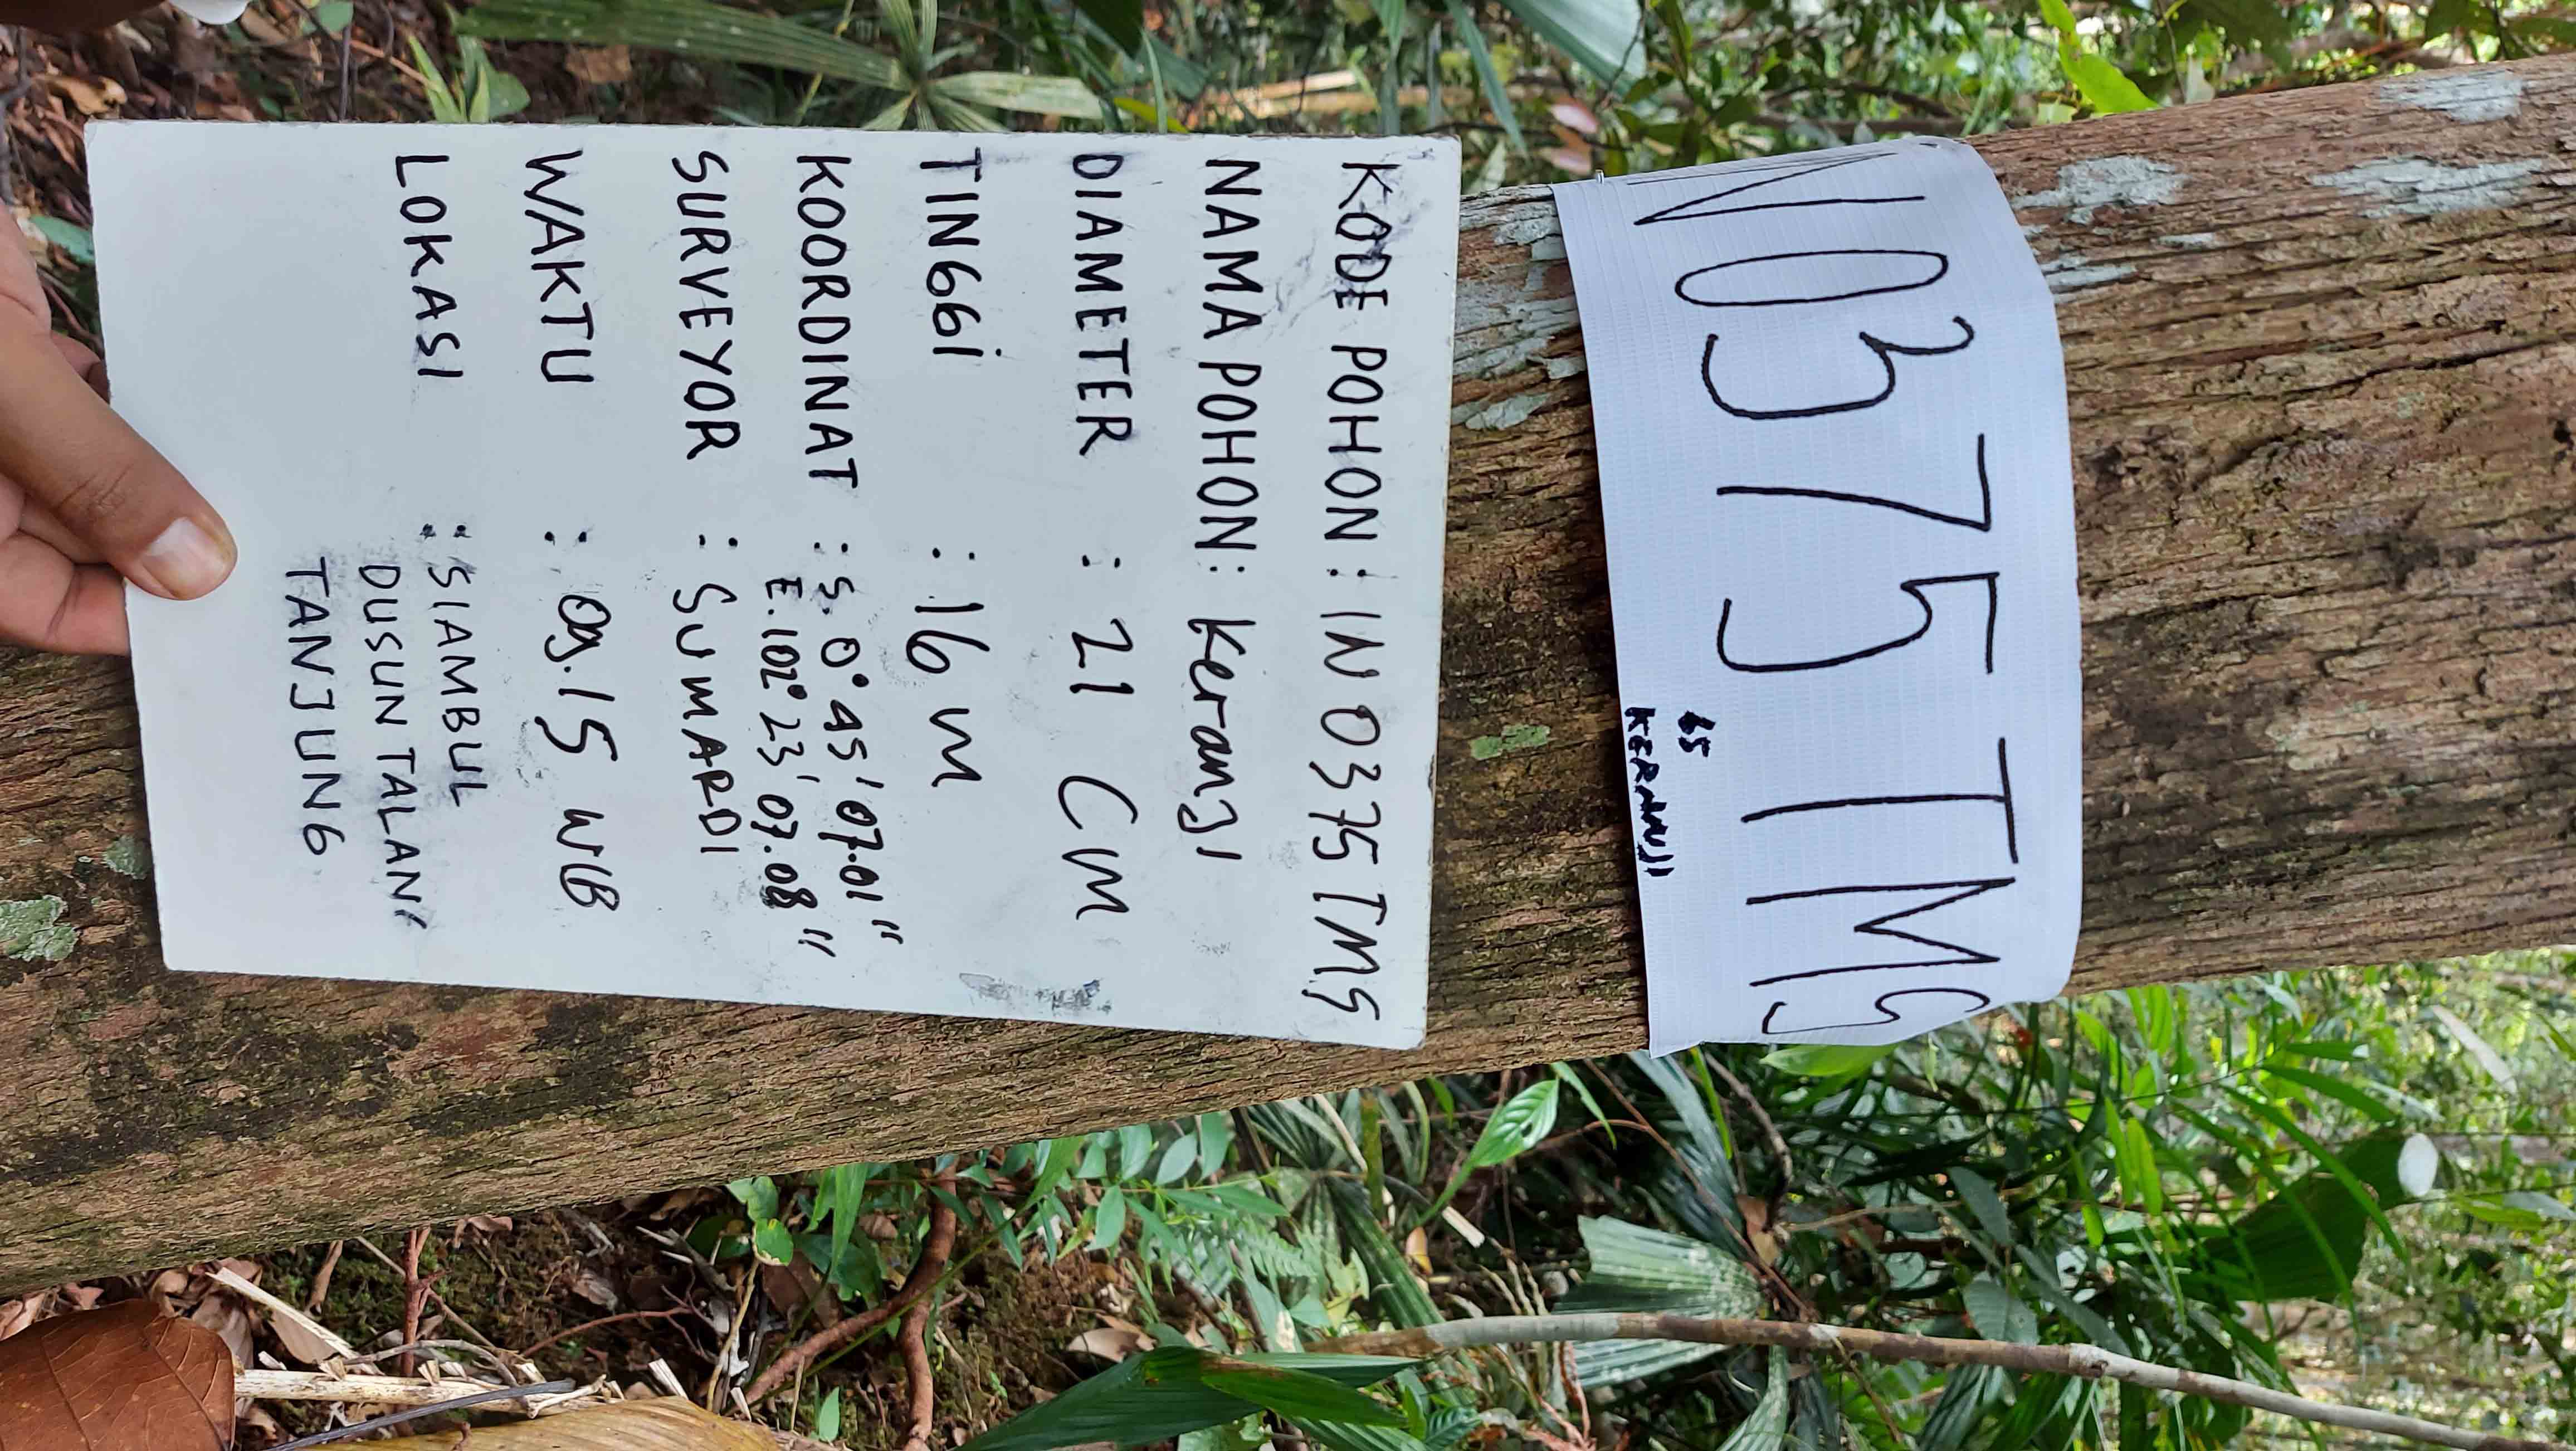 N0375 TMS
65
KERANJI
KODE POHON : IN 0375 TMS
NAMA POHON : Keranji
DIAMETER : 21 CM
TINGGi : 16 m
KOORDINAT : S. 0° 45' 07.01"
E. 102° 23' 07.08"
SURVEYOR : SUMARDI
WAKTU : 09.15 WIB
LOKASI : SIAMBUL
DUSUN TALANG
TANJUNG